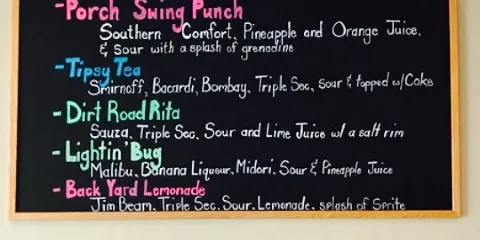 -Porch Swing Punch
Southern Comfort, Pineapple and Orange Juice,
& Sour with a splash of grenadine
-Tipsy Tea
Smirnoff, Bacardi, Bombay, Triple Sec, Sour & topped w/Coke
-Dirt Road Rita
Sauza, Triple Sec, Sour and Lime Juice w/ a salt rim
-Lightin' Bug
Malibu, Banana Liqueur, Midori, Sour & Pineapple Juice
-Back Yard Lemonade
Jim Beam, Triple Sec, Sour, Lemonade, splash of Sprite